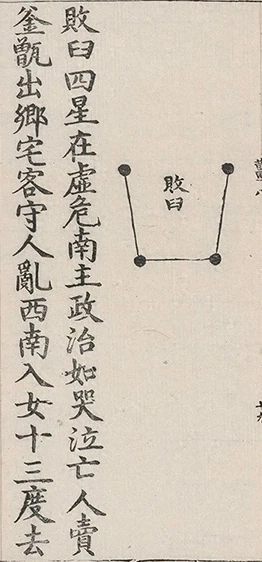 敗臼
敗臼四星在虛危南主政治如哭泣亡人賣
釜甑出鄉宅客守人亂西南入女十三度去